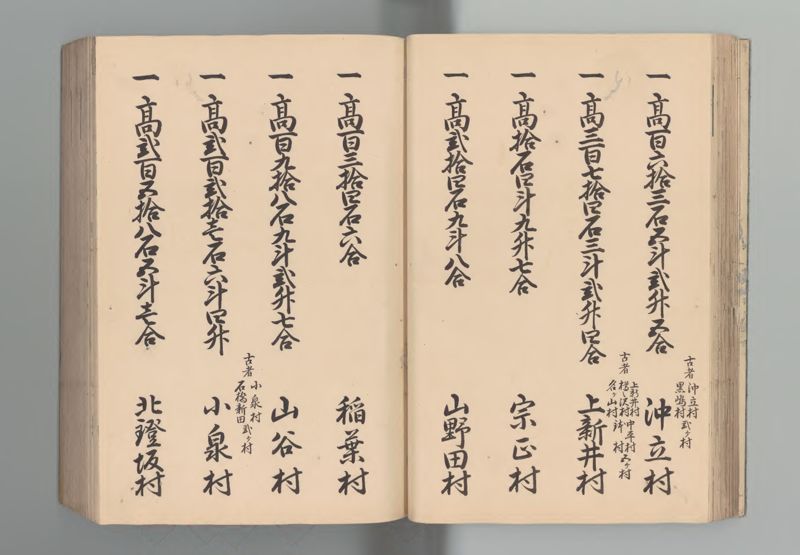 一高百六拾三石五斗弐升五合
古者 沖立村 黒嶋村 弐ケ村
沖立村
一高三百七拾四石三斗弐升四合
古者 上新井村 中平村 五ケ村
上新井村
一高拾石四斗九升七合
宗正村
一高弐拾四石九斗八合
山野田村
一高百三拾四石六合
稲葉村
一高百九拾八石九斗弐升七合
山谷村
一高弐百弐拾壱石六斗四升
古者 小泉村 石橋新田 弐ケ村
小泉村
一高弐百五拾八石五斗壱合
北鐙坂村